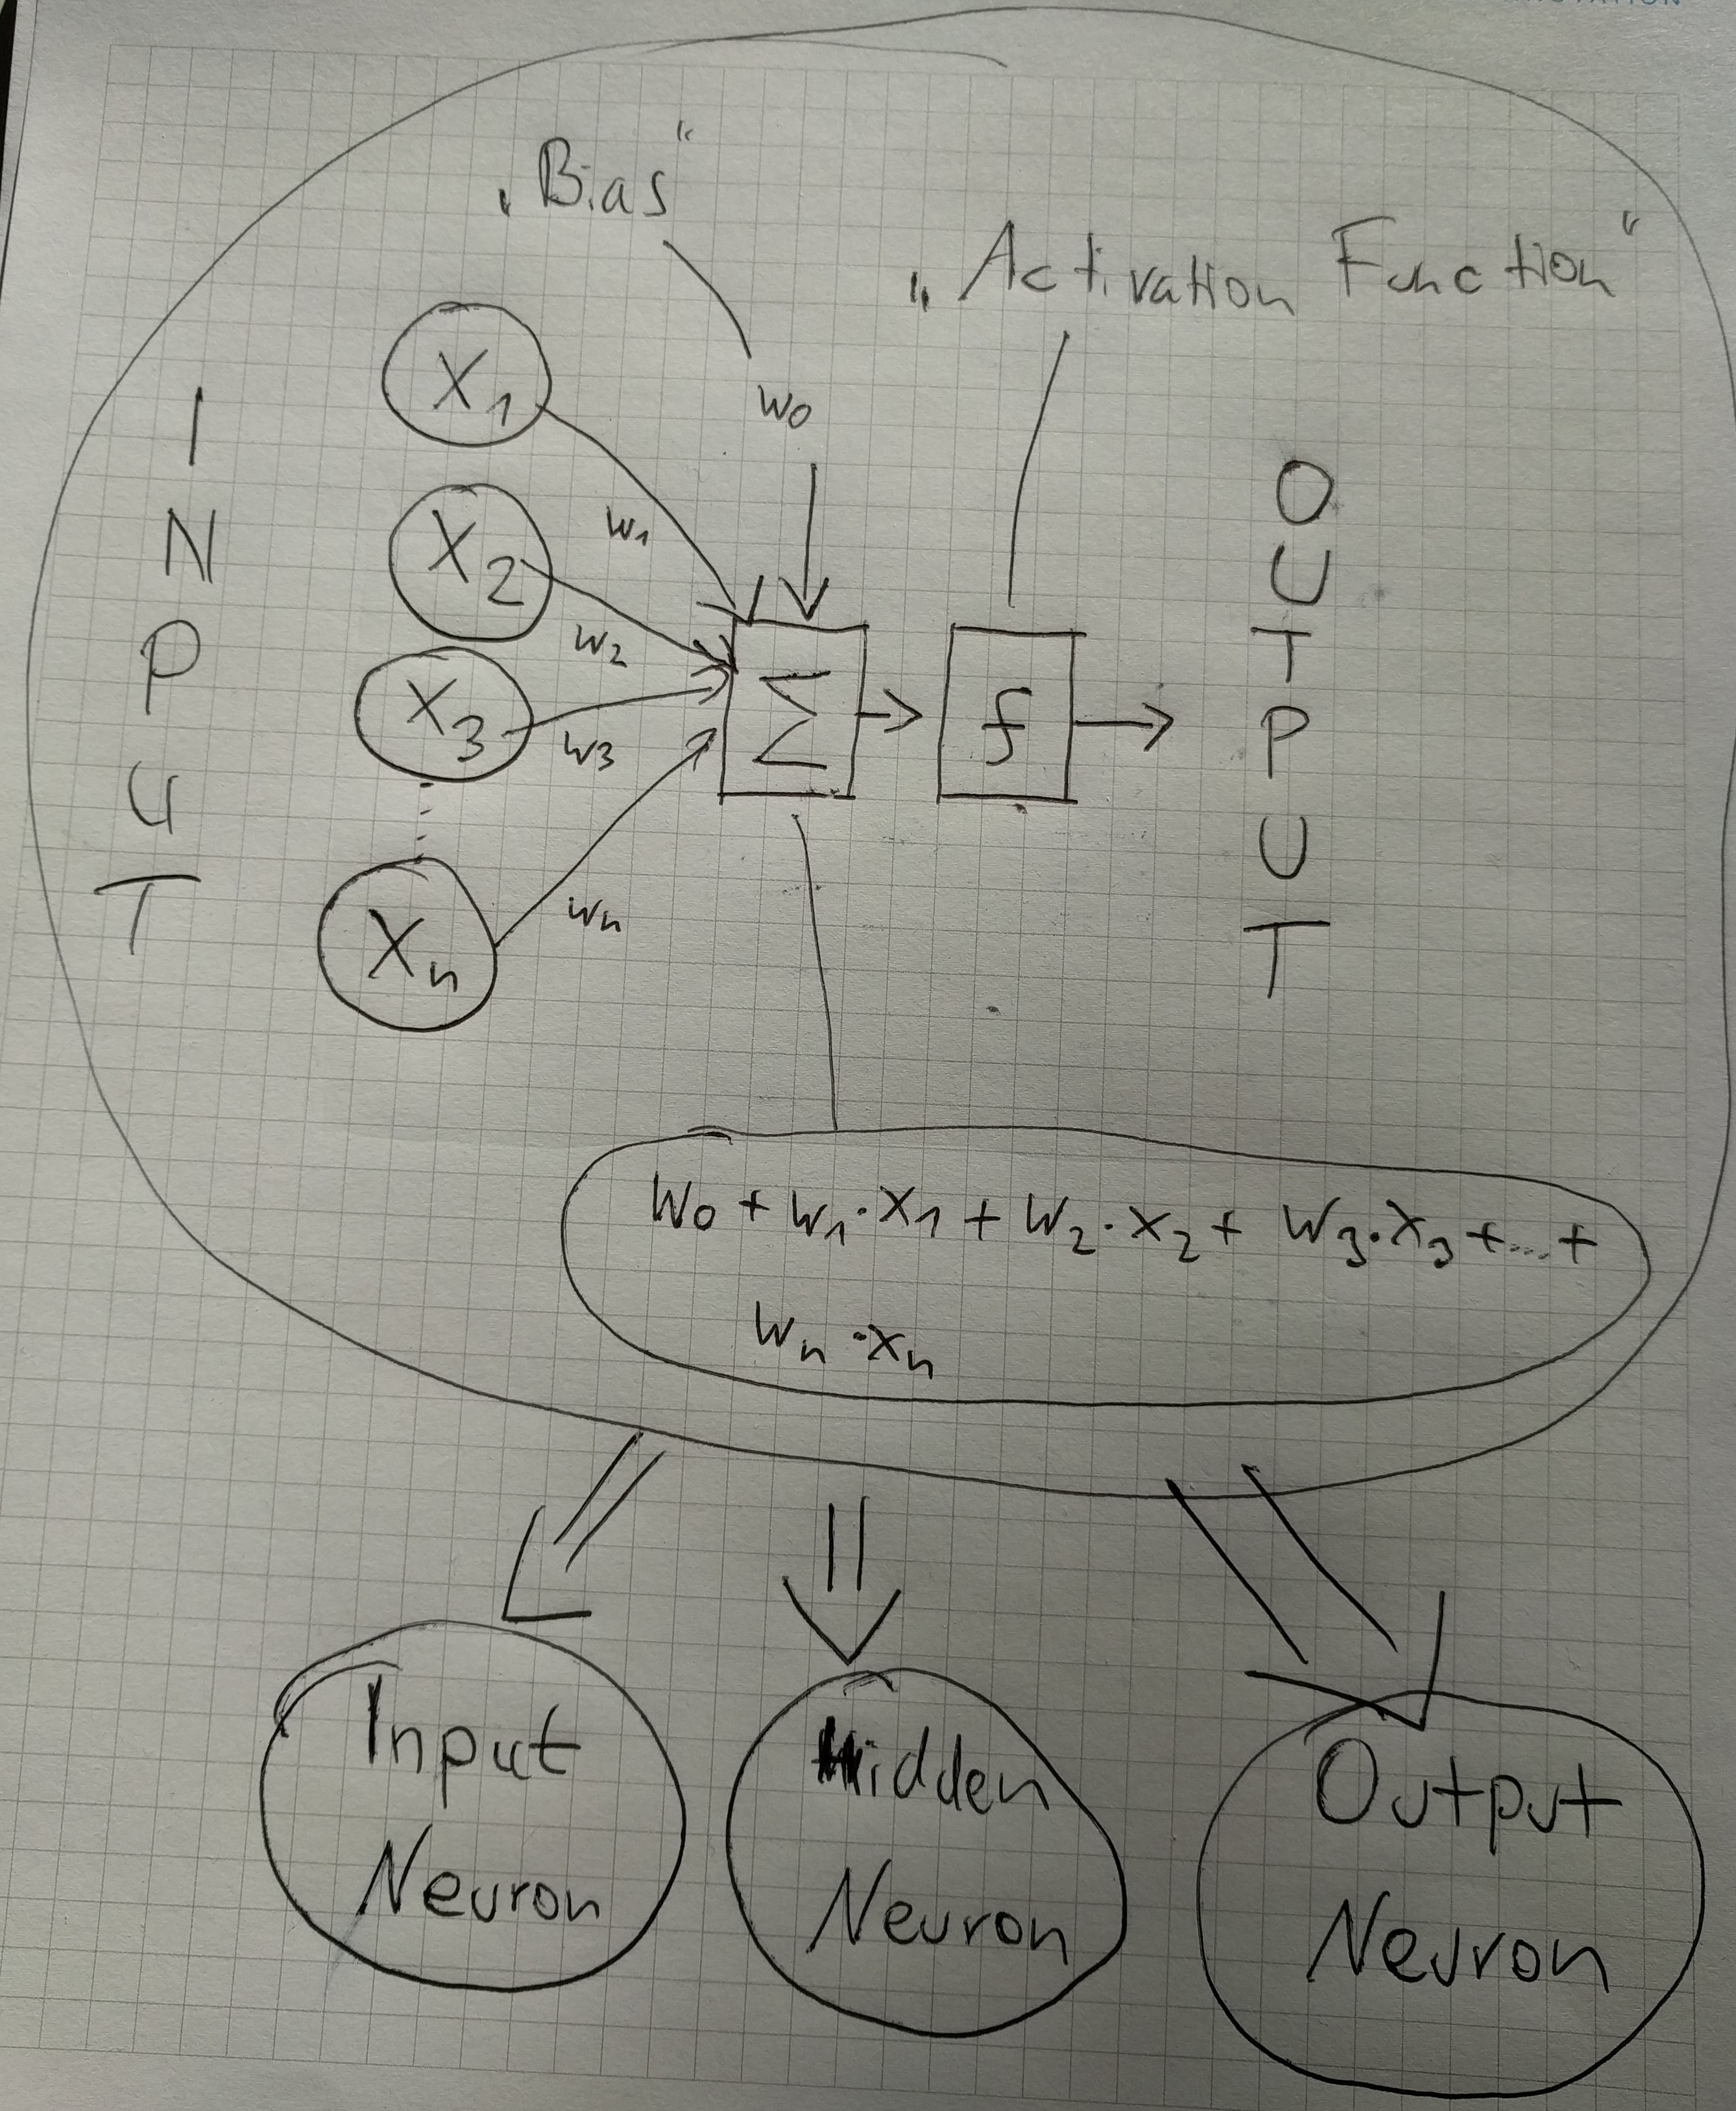 „Bias“
„Activation Function“
INPUT
X1
X2
X3
Xn
w0
w1
w2
w3
wn
Σ
f
OUTPUT
w0 + w1·x1 + w2·x2 + w3·x3 + ... +
wn·xn
Input
Neuron
Hidden
Neuron
Output
Neuron